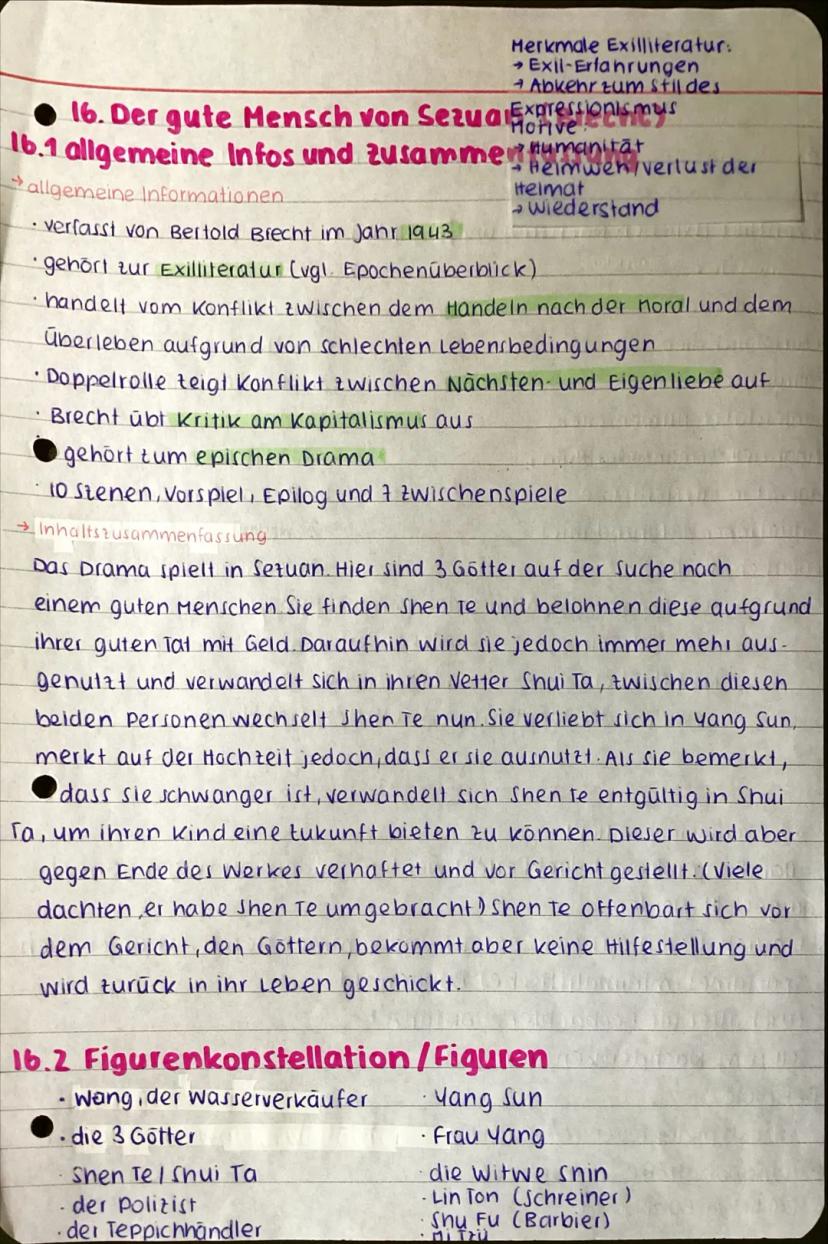 Merkmale Exilliteratur:
→ Exil-Erfahrungen
→ Abkehr zum Stil des
Expressionismus
Motive:
→ Humanität
→ Heimweh/verlust der
Heimat
→ Wiederstand
16. Der gute Mensch von Sezuan
16.1 allgemeine Infos und Zusammenfassung
→ allgemeine Informationen
· verfasst von Bertold Brecht im Jahr 1943
· gehört zur Exilliteratur (vgl. Epochenüberblick)
· handelt vom Konflikt zwischen dem Handeln nach der Moral und dem
Überleben aufgrund von schlechten Lebensbedingungen
· Doppelrolle zeigt Konflikt zwischen Nächsten- und Eigenliebe auf
· Brecht übt Kritik am Kapitalismus aus
gehört zum epischen Drama
· 10 Szenen, Vorspiel, Epilog und 7 Zwischenspiele
→ Inhaltszusammenfassung
Das Drama spielt in Sezuan. Hier sind 3 Götter auf der Suche nach
einem guten Menschen. Sie finden Shen Te und belohnen diese aufgrund
ihrer guten Tat mit Geld. Daraufhin wird sie jedoch immer mehr aus-
genutzt und verwandelt sich in ihren Vetter Shui Ta, zwischen diesen
beiden Personen wechselt Shen Te nun. Sie verliebt sich in Yang Sun,
merkt auf der Hochzeit jedoch, dass er sie ausnutzt. Als sie bemerkt,
dass sie schwanger ist, verwandelt sich Shen Te entgültig in Shui
Ta, um ihren Kind eine Zukunft bieten zu können. Dieser wird aber
gegen Ende des Werkes verhaftet und vor Gericht gestellt. (Viele
dachten, er habe Shen Te umgebracht) Shen Te offenbart sich vor
dem Gericht, den Göttern, bekommt aber keine Hilfestellung und
wird zurück in ihr Leben geschickt.
16.2 Figurenkonstellation/Figuren
· Wang, der Wasserverkäufer
· die 3 Götter
· Shen Te / Shui Ta
· der Polizist
· der Teppichhändler
· Yang Sun
· Frau Yang
· die Witwe Shin
· Lin Ton (Schreiner)
· Shu Fu (Barbier)
· Mi Tzü